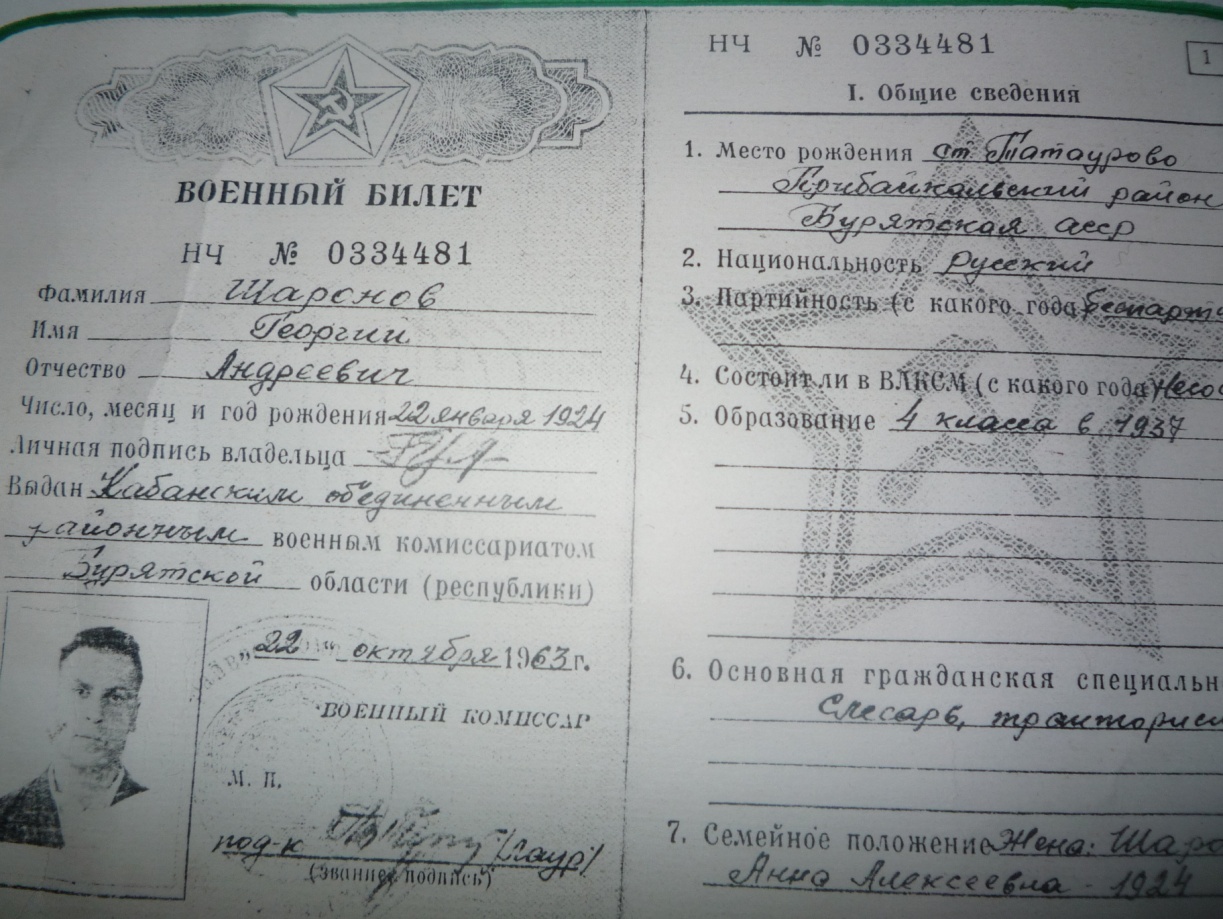 ВОЕННЫЙ БИЛЕТ
НЧ № 0334481
Фамилия Шаронов
Имя Георгий
Отчество Андреевич
Число, месяц и год рождения 22 января 1924
Личная подпись владельца
Выдан Кабанским объединенным
районным военным комиссариатом
Бурятской области (республики)
22 октября 1963 г.
ВОЕННЫЙ КОМИССАР
М. П.
под-к
(звание, подпись)
НЧ № 0334481
1
I. Общие сведения
1. Место рождения ст. Татаурово
Прибайкальский район
Бурятская асср
2. Национальность русский
3. Партийность (с какого года) беспарти
4. Состоит ли в ВЛКСМ (с какого года) Несос
5. Образование 4 класса в 1937
6. Основная гражданская специальн
Слесарь, тракторис
7. Семейное положение Жена: Шаро
Анна Алексеевна - 1924